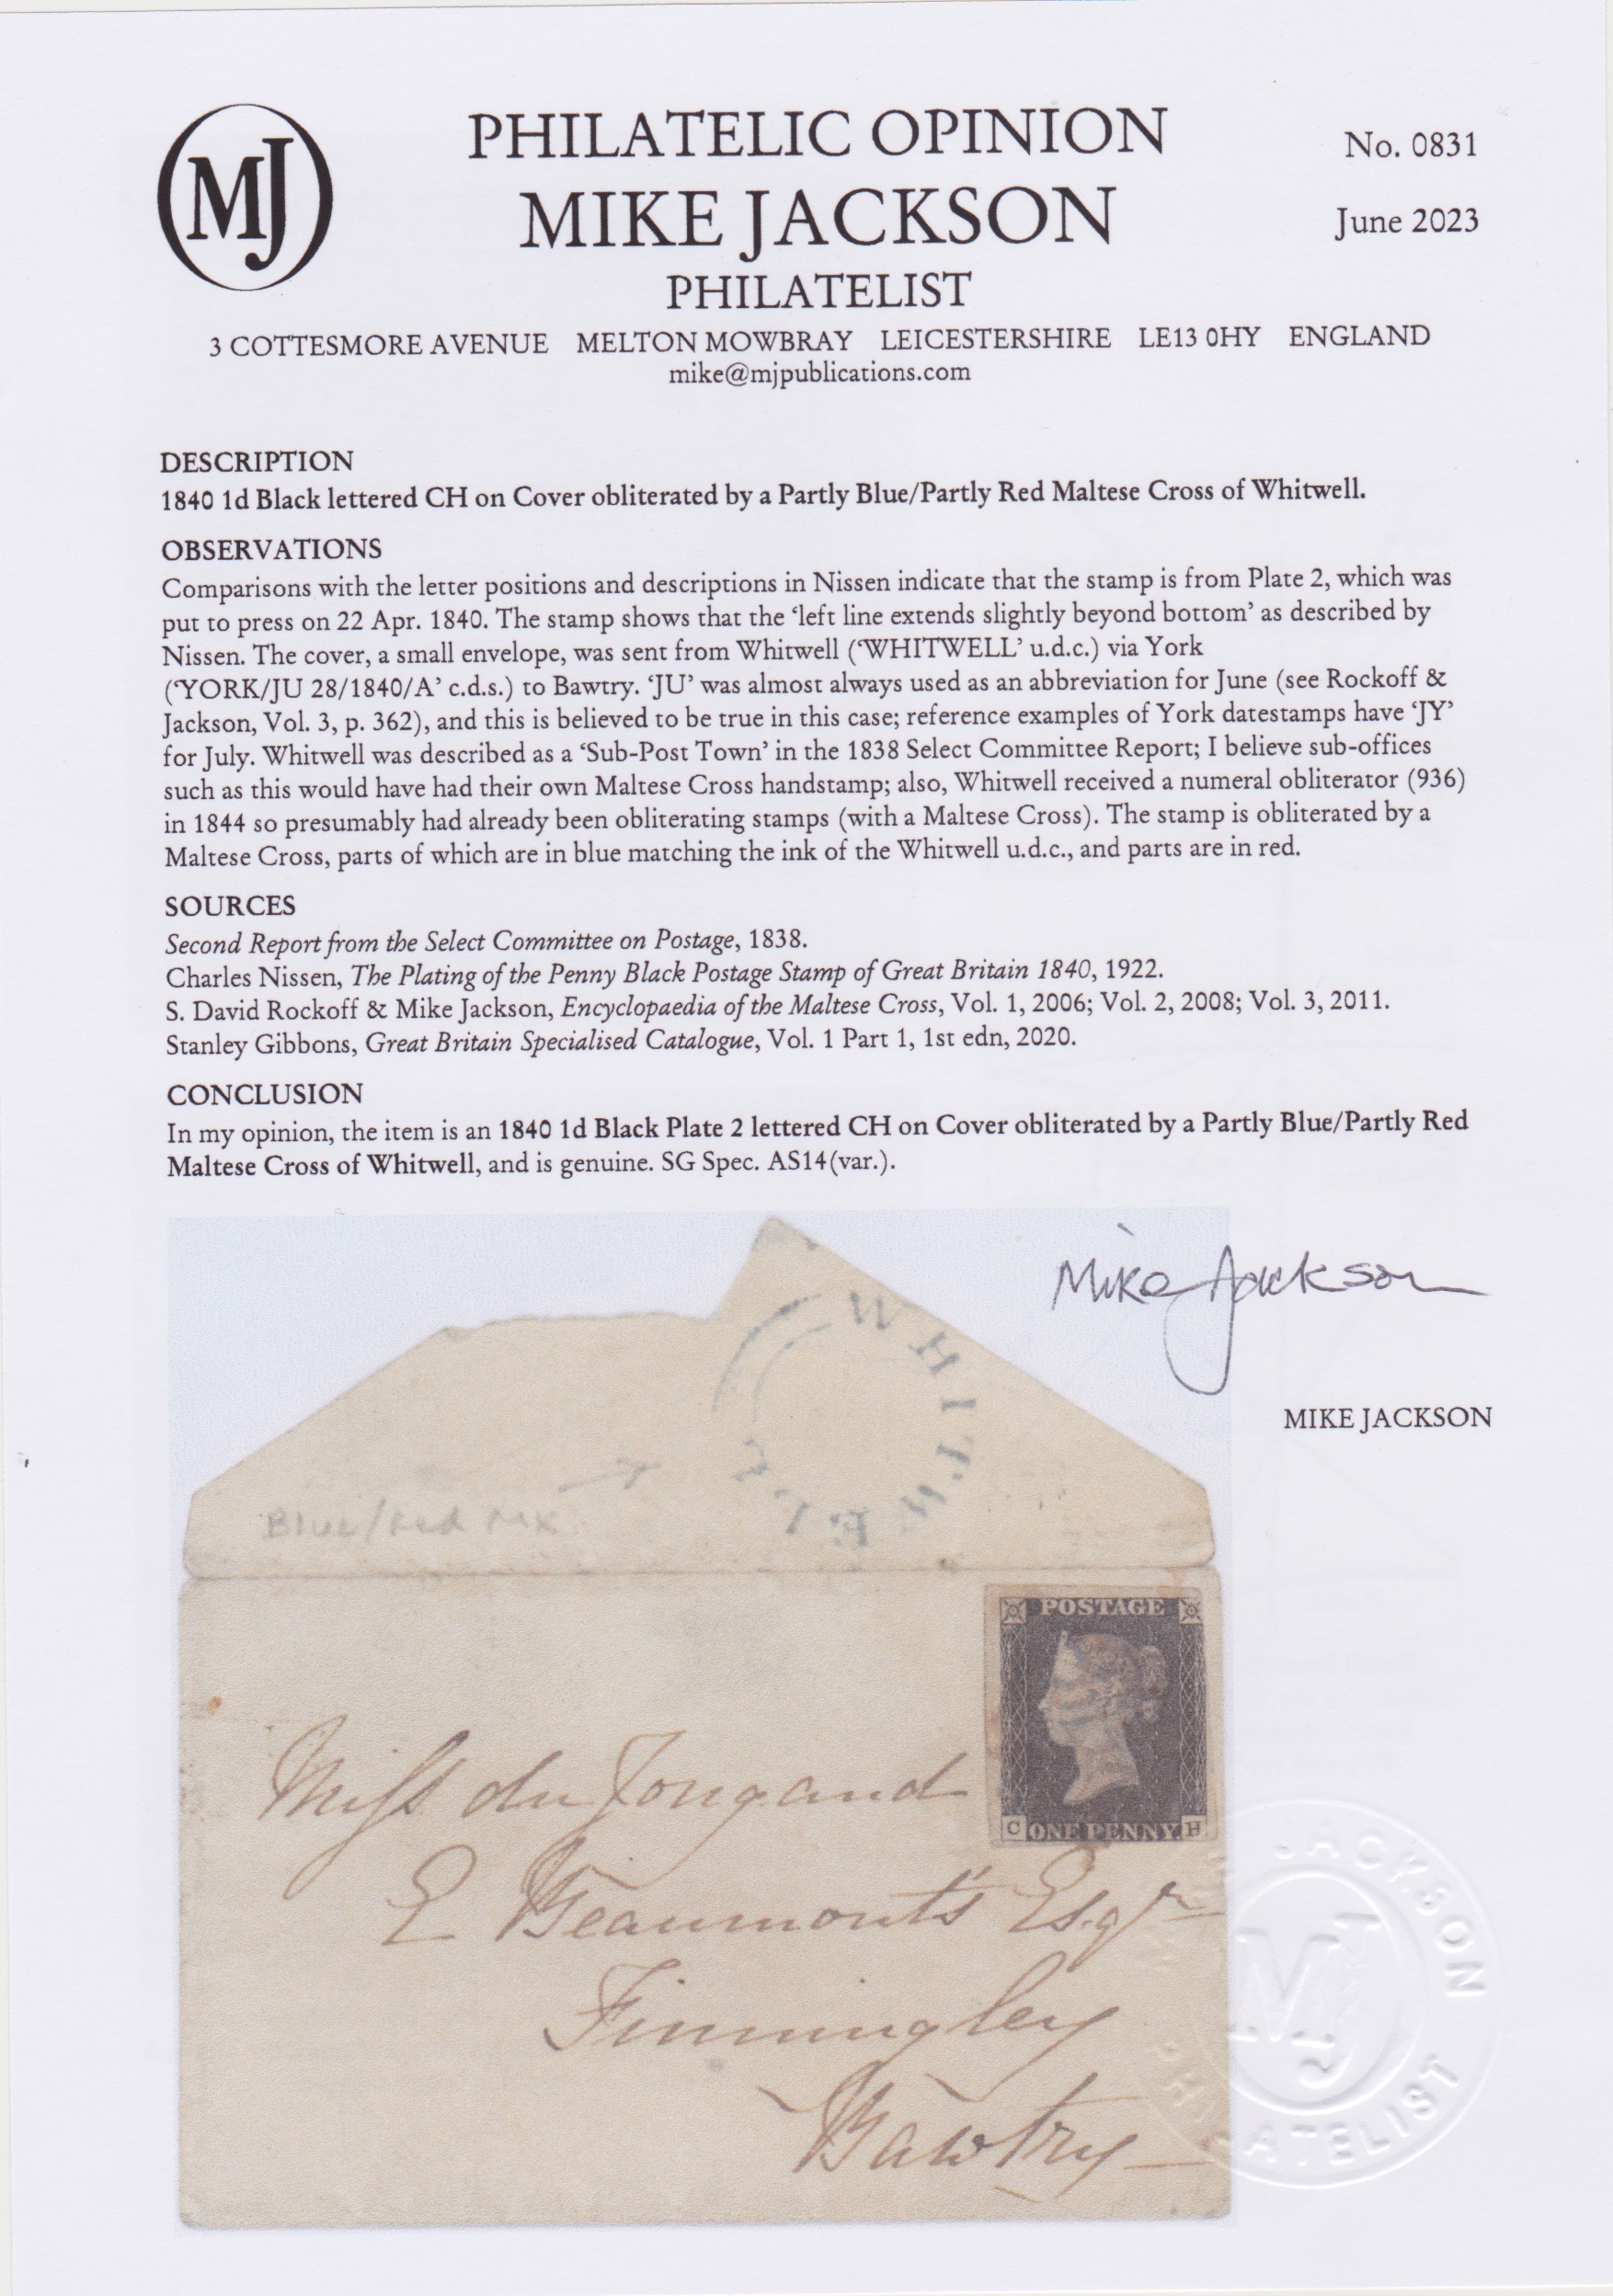 MJ
PHILATELIC OPINION
MIKE JACKSON
PHILATELIST
No. 0831
June 2023
3 COTTESMORE AVENUE MELTON MOWBRAY LEICESTERSHIRE LE13 0HY ENGLAND
mike@mjpublications.com
DESCRIPTION
1840 1d Black lettered CH on Cover obliterated by a Partly Blue/Partly Red Maltese Cross of Whitwell.
OBSERVATIONS
Comparisons with the letter positions and descriptions in Nissen indicate that the stamp is from Plate 2, which was
put to press on 22 Apr. 1840. The stamp shows that the ‘left line extends slightly beyond bottom’ as described by
Nissen. The cover, a small envelope, was sent from Whitwell (‘WHITWELL’ u.d.c.) via York
(‘YORK/JU 28/1840/A’ c.d.s.) to Bawtry. ‘JU’ was almost always used as an abbreviation for June (see Rockoff &
Jackson, Vol. 3, p. 362), and this is believed to be true in this case; reference examples of York datestamps have ‘JY’
for July. Whitwell was described as a ‘Sub-Post Town’ in the 1838 Select Committee Report; I believe sub-offices
such as this would have had their own Maltese Cross handstamp; also, Whitwell received a numeral obliterator (936)
in 1844 so presumably had already been obliterating stamps (with a Maltese Cross). The stamp is obliterated by a
Maltese Cross, parts of which are in blue matching the ink of the Whitwell u.d.c., and parts are in red.
SOURCES
Second Report from the Select Committee on Postage, 1838.
Charles Nissen, The Plating of the Penny Black Postage Stamp of Great Britain 1840, 1922.
S. David Rockoff & Mike Jackson, Encyclopaedia of the Maltese Cross, Vol. 1, 2006; Vol. 2, 2008; Vol. 3, 2011.
Stanley Gibbons, Great Britain Specialised Catalogue, Vol. 1 Part 1, 1st edn, 2020.
CONCLUSION
In my opinion, the item is an 1840 1d Black Plate 2 lettered CH on Cover obliterated by a Partly Blue/Partly Red
Maltese Cross of Whitwell, and is genuine. SG Spec. AS14(var.).
Mike Jackson
MIKE JACKSON
WHITWELL
Blue/Red MX
POSTAGE
C ONE PENNY H
Miss du
E Beaumont's Esqr
Finningley
Bawtry
JACKSON
MJ
PHILATELIST